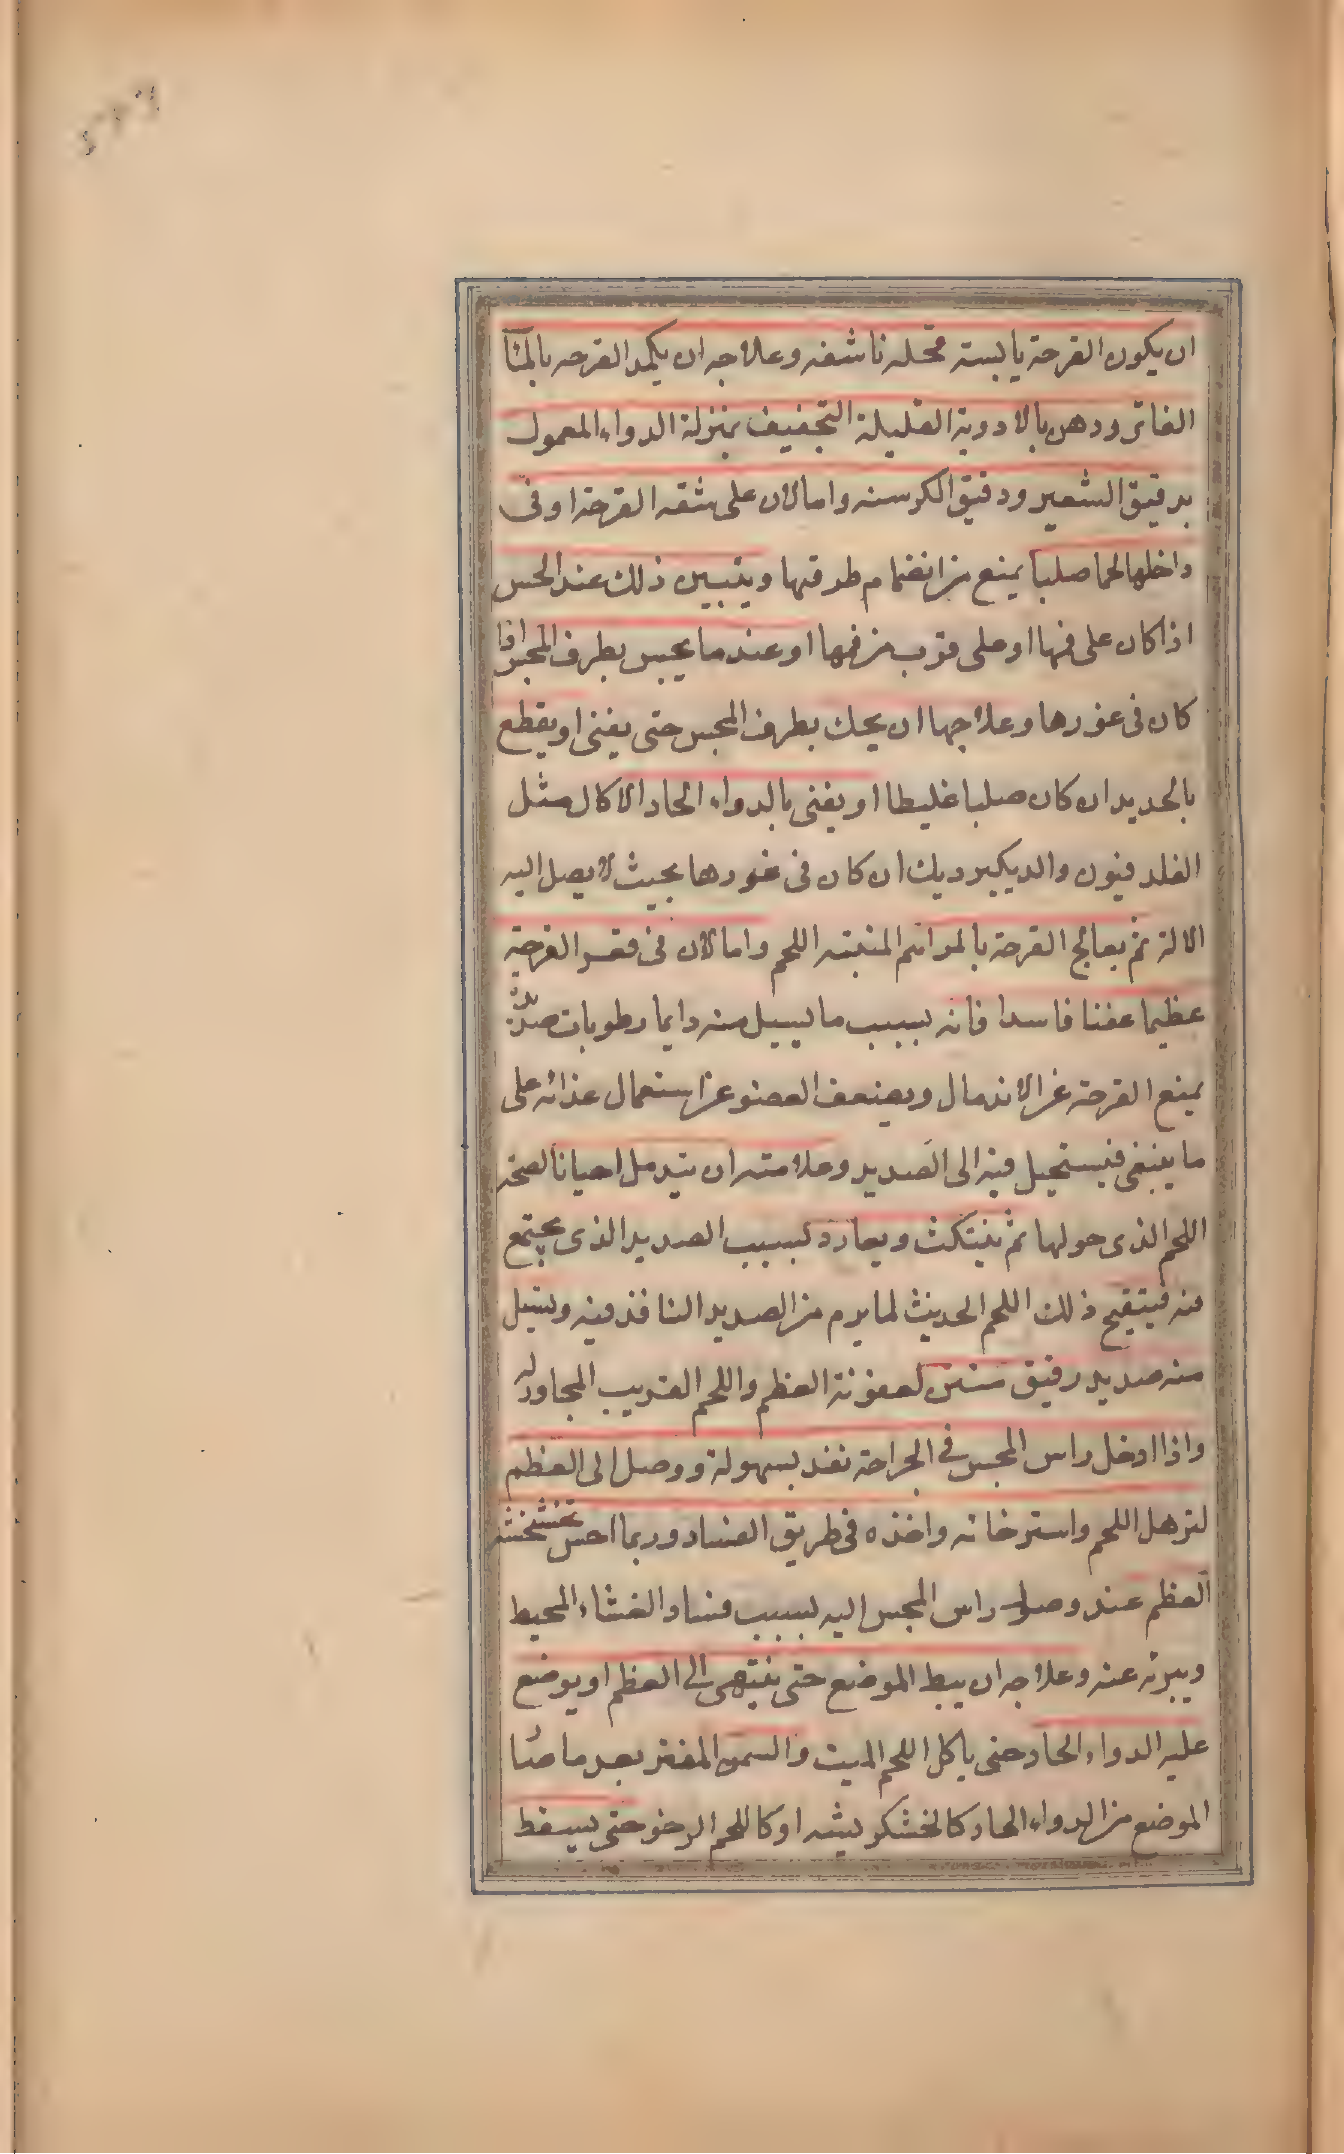 ان يكون القرحة يابسته قحله ناشفه وعلاجه ان يكمد القرحه بالماء
الفاتر ودهن بالادوية القليلة التجفيف بمنزلة الدواء المعمول
بدقيق الشعير ودقيق الكرسنه واما لان على شفه القرحة او فى
داخلها لحما صلبا يمنع من انضمام طرفها ويتبين ذلك عند الحس
اذا كان على فمها او على قرب من فمها او عند ما يجس بطرف المجس اذا
كان فى غورها وعلاجها ان يحك بطرف المجس حتى يفنى او يقطع
بالحديد ان كان صلبا غليظا او يفنى بالدواء الحاد الاكال مثل
الفلدفيون والديكبرديك ان كان فى غورها بحيث لا يصل اليه
الالة ثم يعالج القرحة بالمراهم المنبته اللحم واما لان فى قعر القرحة
عظيما عفنا فاسدا فانه بسبب ما يسيل منه دايما رطوبات صديدية
يمنع القرحة عن الاندمال ويضعف العضو عن استعمال غذائه على
ما ينبغى فيستحيل فيه الى الصديد وعلامته ان يندمل احيانا لصحة
اللحم الذى حولها ثم ينتكث ويعاود بسبب الصديد الذى يجتمع
فيه فيتقيح ذلك اللحم الحديث لما يرم من الصديد النافذ فيه ويسيل
منه صديد رقيق منتن لعفونة العظم واللحم القريب المجاور له
واذا ادخل راس المجس فى الجراحة نفذ بسهولة ووصل الى العظم
لترهل اللحم واسترخائه واخذه فى طريق الفساد وربما احس تخشخش
العظم عند وصول راس المجس اليه بسبب فساد الغشاء المحيط
ويبرئه عنه وعلاجه ان يبط الموضع حتى ينتهى الى العظم او يوضع
عليه الدواء الحاد حتى ياكل اللحم الميت والسمن المفتر بعد ما صار
الموضع من الدواء الحاد كالخشكريشه او كاللحم الرخو حتى يسقط